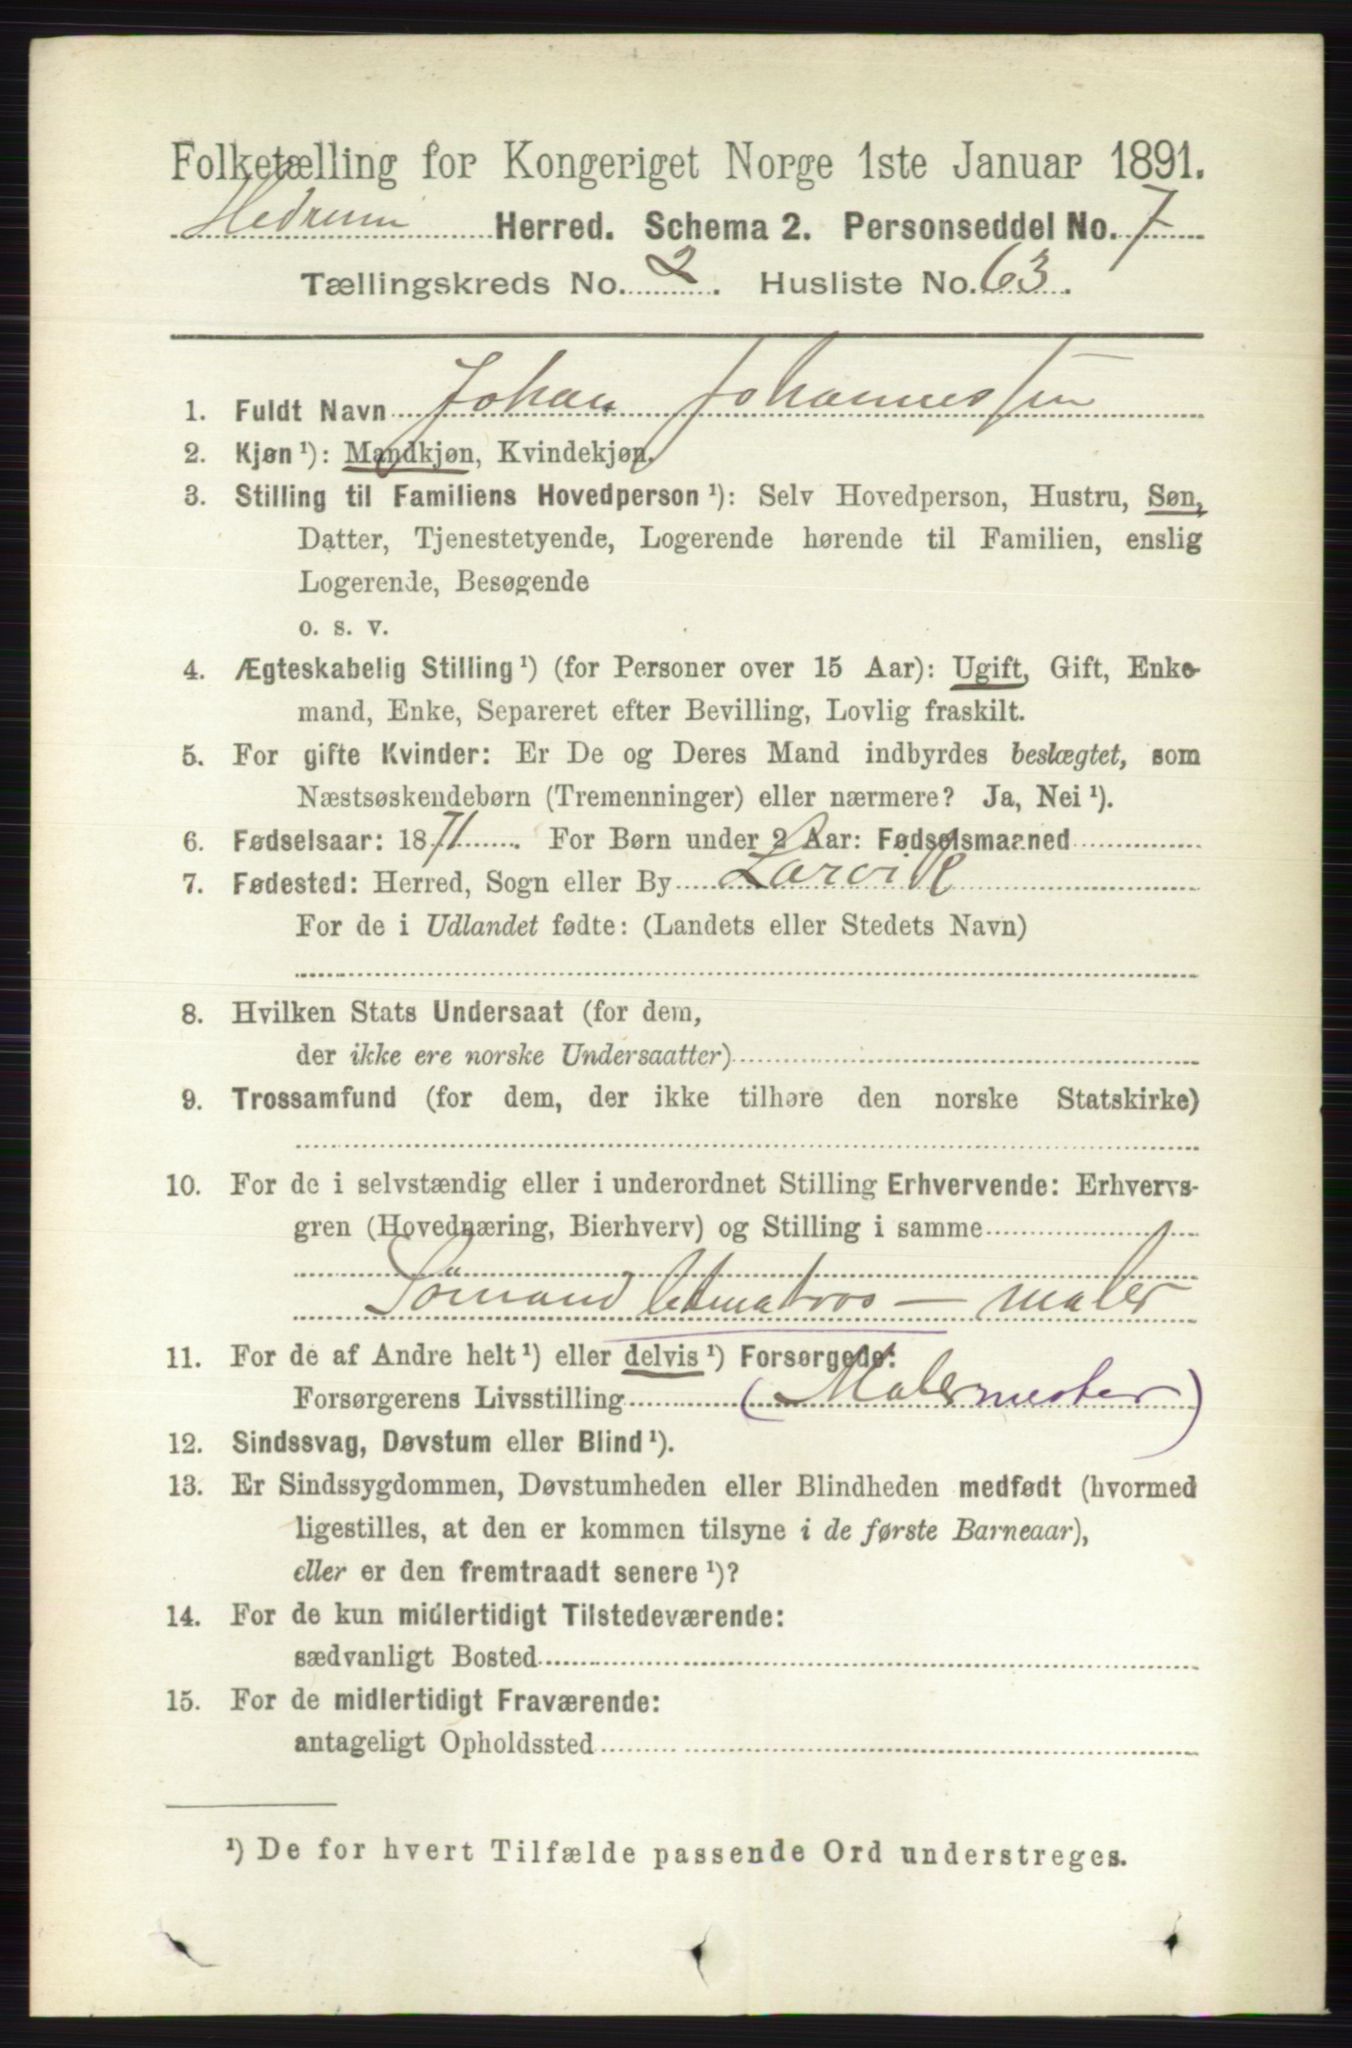 Folketælling for Kongeriget Norge 1ste Januar 1891.
Hedrum Herred. Schema 2. Personseddel No. 7
Tællingskreds No. 2. Husliste No. 63.
1. Fuldt Navn Johan Johannessen
2. Kjøn¹): Mandkjøn, Kvindekjøn.
3. Stilling til Familiens Hovedperson¹): Selv Hovedperson, Hustru, Søn,
Datter, Tjenestetyende, Logerende hørende til Familien, enslig
Logerende, Besøgende
o. s. v.
4. Ægteskabelig Stilling¹) (for Personer over 15 Aar): Ugift, Gift, Enke-
mand, Enke, Separeret efter Bevilling, Lovlig fraskilt.
5. For gifte Kvinder: Er De og Deres Mand indbyrdes beslægtet, som
Næstsøskendebørn (Tremenninger) eller nærmere? Ja, Nei¹).
6. Fødselsaar: 1871. For Børn under 2 Aar: Fødselsmaaned
7. Fødested: Herred, Sogn eller By Larvik
For de i Udlandet fødte: (Landets eller Stedets Navn)
8. Hvilken Stats Undersaat (for dem,
der ikke ere norske Undersaatter)
9. Trossamfund (for dem, der ikke tilhøre den norske Statskirke)
10. For de i selvstændig eller i underordnet Stilling Erhvervende: Erhvervs-
gren (Hovednæring, Bierhverv) og Stilling i samme
Sömand Letmatros — maler
11. For de af Andre helt¹) eller delvis¹) Forsørgede:
Forsørgerens Livsstilling (Malermester)
12. Sindssvag, Døvstum eller Blind¹).
13. Er Sindssygdommen, Døvstumheden eller Blindheden medfødt (hvormed
ligestilles, at den er kommen tilsyne i de første Barneaar),
eller er den fremtraadt senere¹)?
14. For de kun midlertidigt Tilstedeværende:
sædvanligt Bosted
15. For de midlertidigt Fraværende:
antageligt Opholdssted
¹) De for hvert Tilfælde passende Ord understreges.